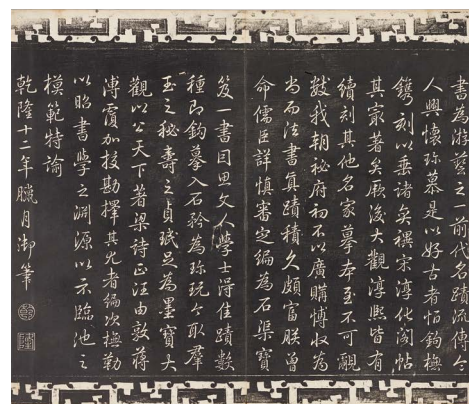 書為游藝之一前代名蹟流傳今
人興懷珍慕是以好古者恆鉤橅
鐫刻以垂諸奕禩宋淳化閣帖
其最著矣厥後大觀淳熙皆有
續刻其他名家摹本至不可覼
數我朝秘府初不以廣購博收為
尚而法書真蹟積久頗富朕曾
命儒臣詳慎審定編為石渠寶
笈一書因思文人學士得佳蹟數
種即鈎摹入石矜為珍玩今取羣
玉之秘壽之貞珉足為墨寶大
觀以公天下著梁詩正汪由敦蔣
溥覆加校勘擇其尤者編次橅勒
以昭書學之淵源以示臨池之
模範特諭
乾隆十二年臘月御筆
乾
隆